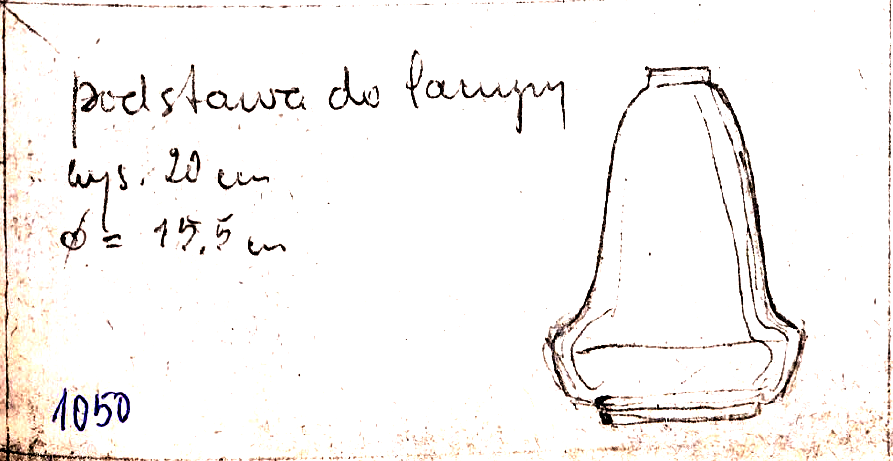 podstawa do lampy
wys. 20 cm
ø = 15,5 cm
1050